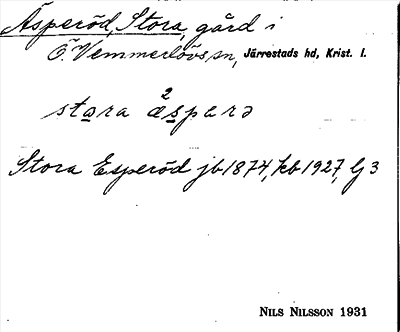 Äsperöd, Stora, gård i
Ö. Vemmerlövs sn, Järrestads hd, Krist. l.
2
stara æspərə
Stora Esperöd jb 1874, kb 1927, Gj 3
NILS NILSSON 1931